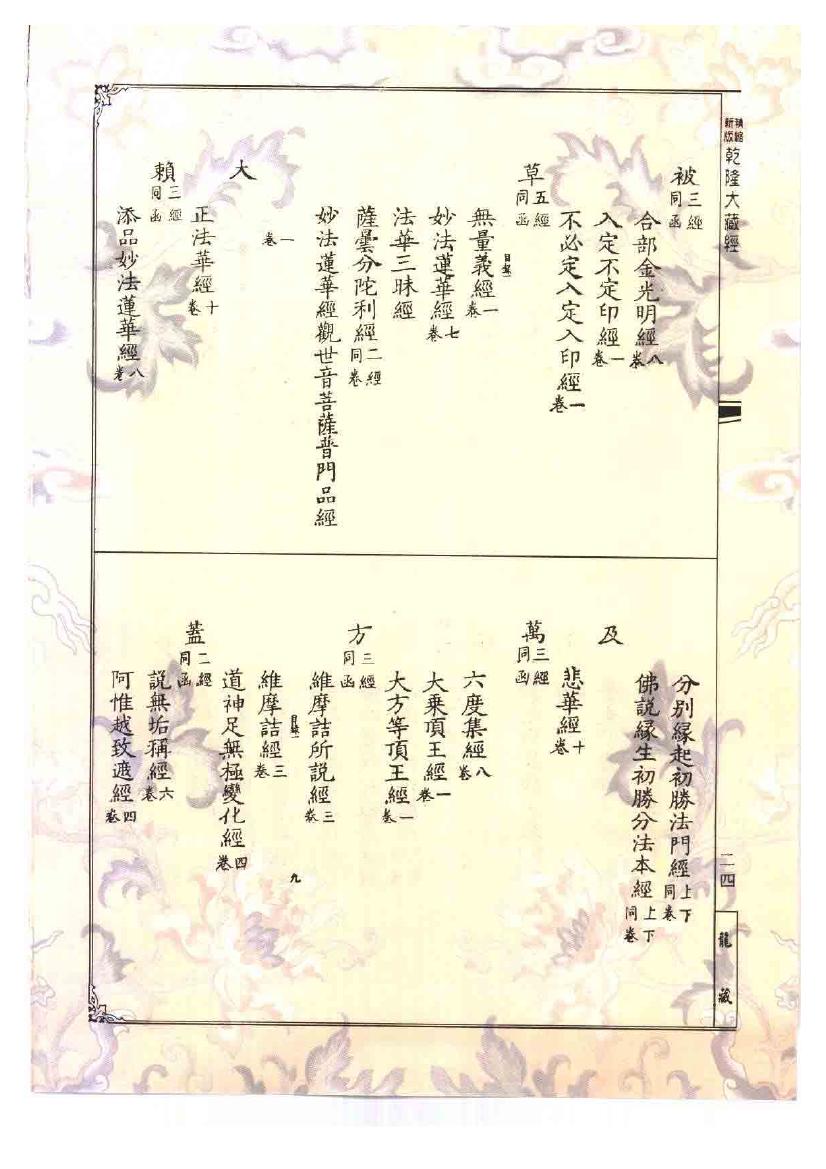 精縮新版 乾隆大藏經
被 三經同函
合部金光明經 八卷
入定不定印經 一卷
不必定入定入印經 一卷
草 五經同函
目錄一
無量義經 一卷
妙法蓮華經 七卷
法華三昧經
薩曇分陀利經 二經同卷
妙法蓮華經觀世音菩薩普門品經
一卷
大
正法華經 十卷
賴 三經同函
添品妙法蓮華經 八卷
分別緣起初勝法門經 上下同卷
佛説緣生初勝分法本經 上下同卷
及
悲華經 十卷
萬 三經同函
六度集經 八卷
大乘頂王經 一卷
大方等頂王經 一卷
方 三經同函
維摩詰所説經 三卷
目錄一
九
維摩詰經 三卷
道神足無極變化經 四卷
蓋 二經同函
説無垢稱經 六卷
阿惟越致遮經 四卷
二四
龍藏